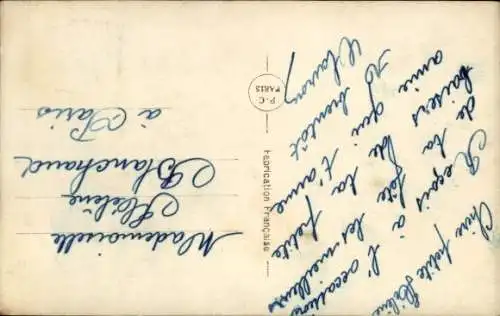 Chère petite Hélène
Reçois à l'occation
de ta fête les meilleurs
baisers de ta petite
amie qui t'aime
A bientôt
Mademoiselle
Hélène
Blanchaud
à Paris
P-C
PARIS
Fabrication Française